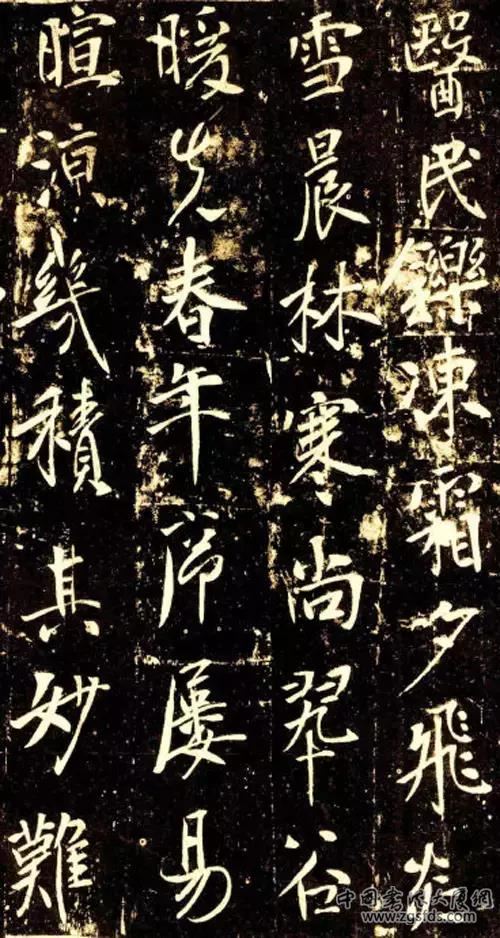 醫民鑠凍霜夕飛炎
雪晨林寒尚翠谷
暖先春年帝屢易
暄涼幾積其妙難
中国書法大展網
www.zgsids.com